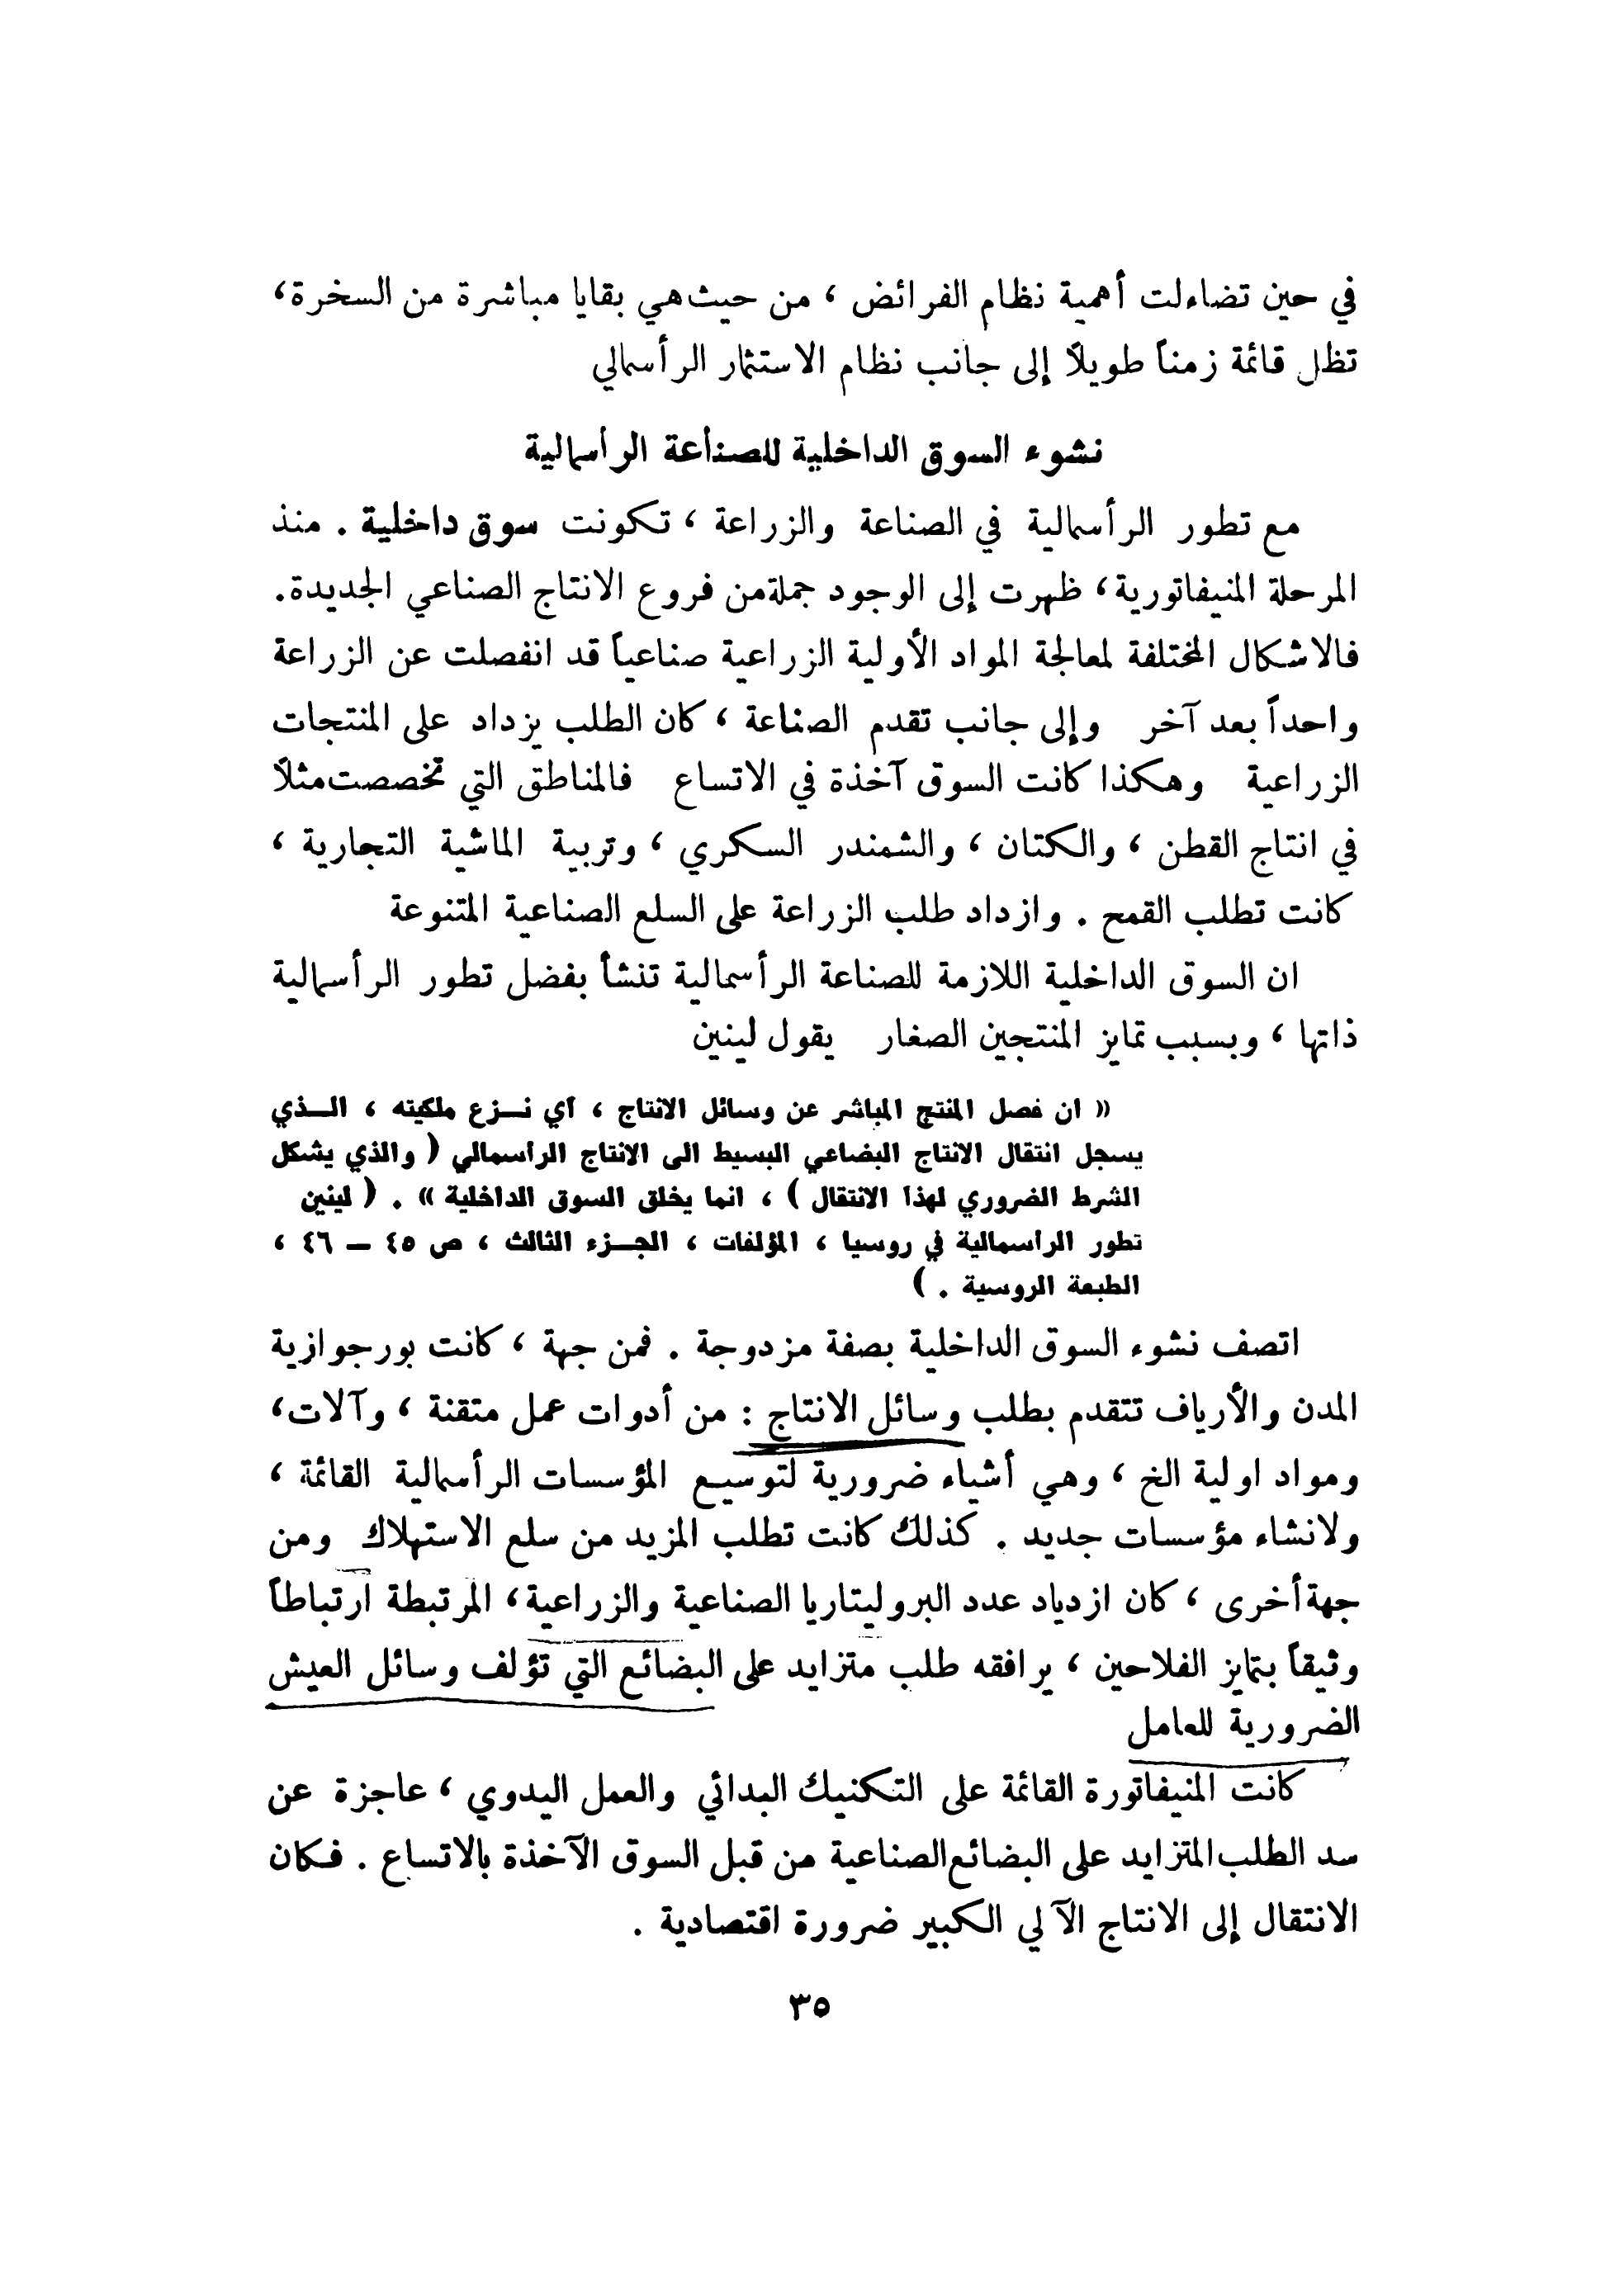 في حين تضاءلت أهمية نظام الفرائض ، من حيث هي بقايا مباشرة من السخرة،
تظل قائمة زمناً طويلاً إلى جانب نظام الاستثمار الرأسمالي
نشوء السوق الداخلية للصناعة الرأسمالية
مع تطور الرأسمالية في الصناعة والزراعة ، تكونت سوق داخلية . منذ
المرحلة المنيفاتورية، ظهرت إلى الوجود جملة من فروع الانتاج الصناعي الجديدة.
فالاشكال المختلفة لمعالجة المواد الأولية الزراعية صناعياً قد انفصلت عن الزراعة
واحداً بعد آخر وإلى جانب تقدم الصناعة ، كان الطلب يزداد على المنتجات
الزراعية وهكذا كانت السوق آخذة في الاتساع فالمناطق التي تخصصت مثلاً
في انتاج القطن ، والكتان ، والشمندر السكري ، وتربية الماشية التجارية ،
كانت تطلب القمح . وازداد طلب الزراعة على السلع الصناعية المتنوعة
ان السوق الداخلية اللازمة للصناعة الرأسمالية تنشأ بفضل تطور الرأسمالية
ذاتها ، وبسبب تمايز المنتجين الصغار يقول لينين
« ان فصل المنتج المباشر عن وسائل الانتاج ، أي نــزع ملكيته ، الــذي
يسجل انتقال الانتاج البضاعي البسيط الى الانتاج الرأسمالي ( والذي يشكل
الشرط الضروري لهذا الانتقال ) ، انما يخلق السوق الداخلية » . ( لينين
تطور الرأسمالية في روسيا ، المؤلفات ، الجــزء الثالث ، ص ٤٥ – ٤٦ ،
الطبعة الروسية . )
اتصف نشوء السوق الداخلية بصفة مزدوجة . فمن جهة ، كانت بورجوازية
المدن والأرياف تتقدم بطلب وسائل الانتاج : من أدوات عمل متقنة ، وآلات،
ومواد اولية الخ ، وهي أشياء ضرورية لتوسيع المؤسسات الرأسمالية القائمة ،
ولانشاء مؤسسات جديد . كذلك كانت تطلب المزيد من سلع الاستهلاك ومن
جهة أخرى ، كان ازدياد عدد البروليتاريا الصناعية والزراعية، المرتبطة ارتباطاً
وثيقاً بتمايز الفلاحين ، يرافقه طلب متزايد على البضائع التي تؤلف وسائل العيش
الضرورية للعامل
كانت المنيفاتورة القائمة على التكنيك البدائي والعمل اليدوي ، عاجزة عن
سد الطلب المتزايد على البضائع الصناعية من قبل السوق الآخذة بالاتساع . فكان
الانتقال إلى الانتاج الآلي الكبير ضرورة اقتصادية .
٣٥